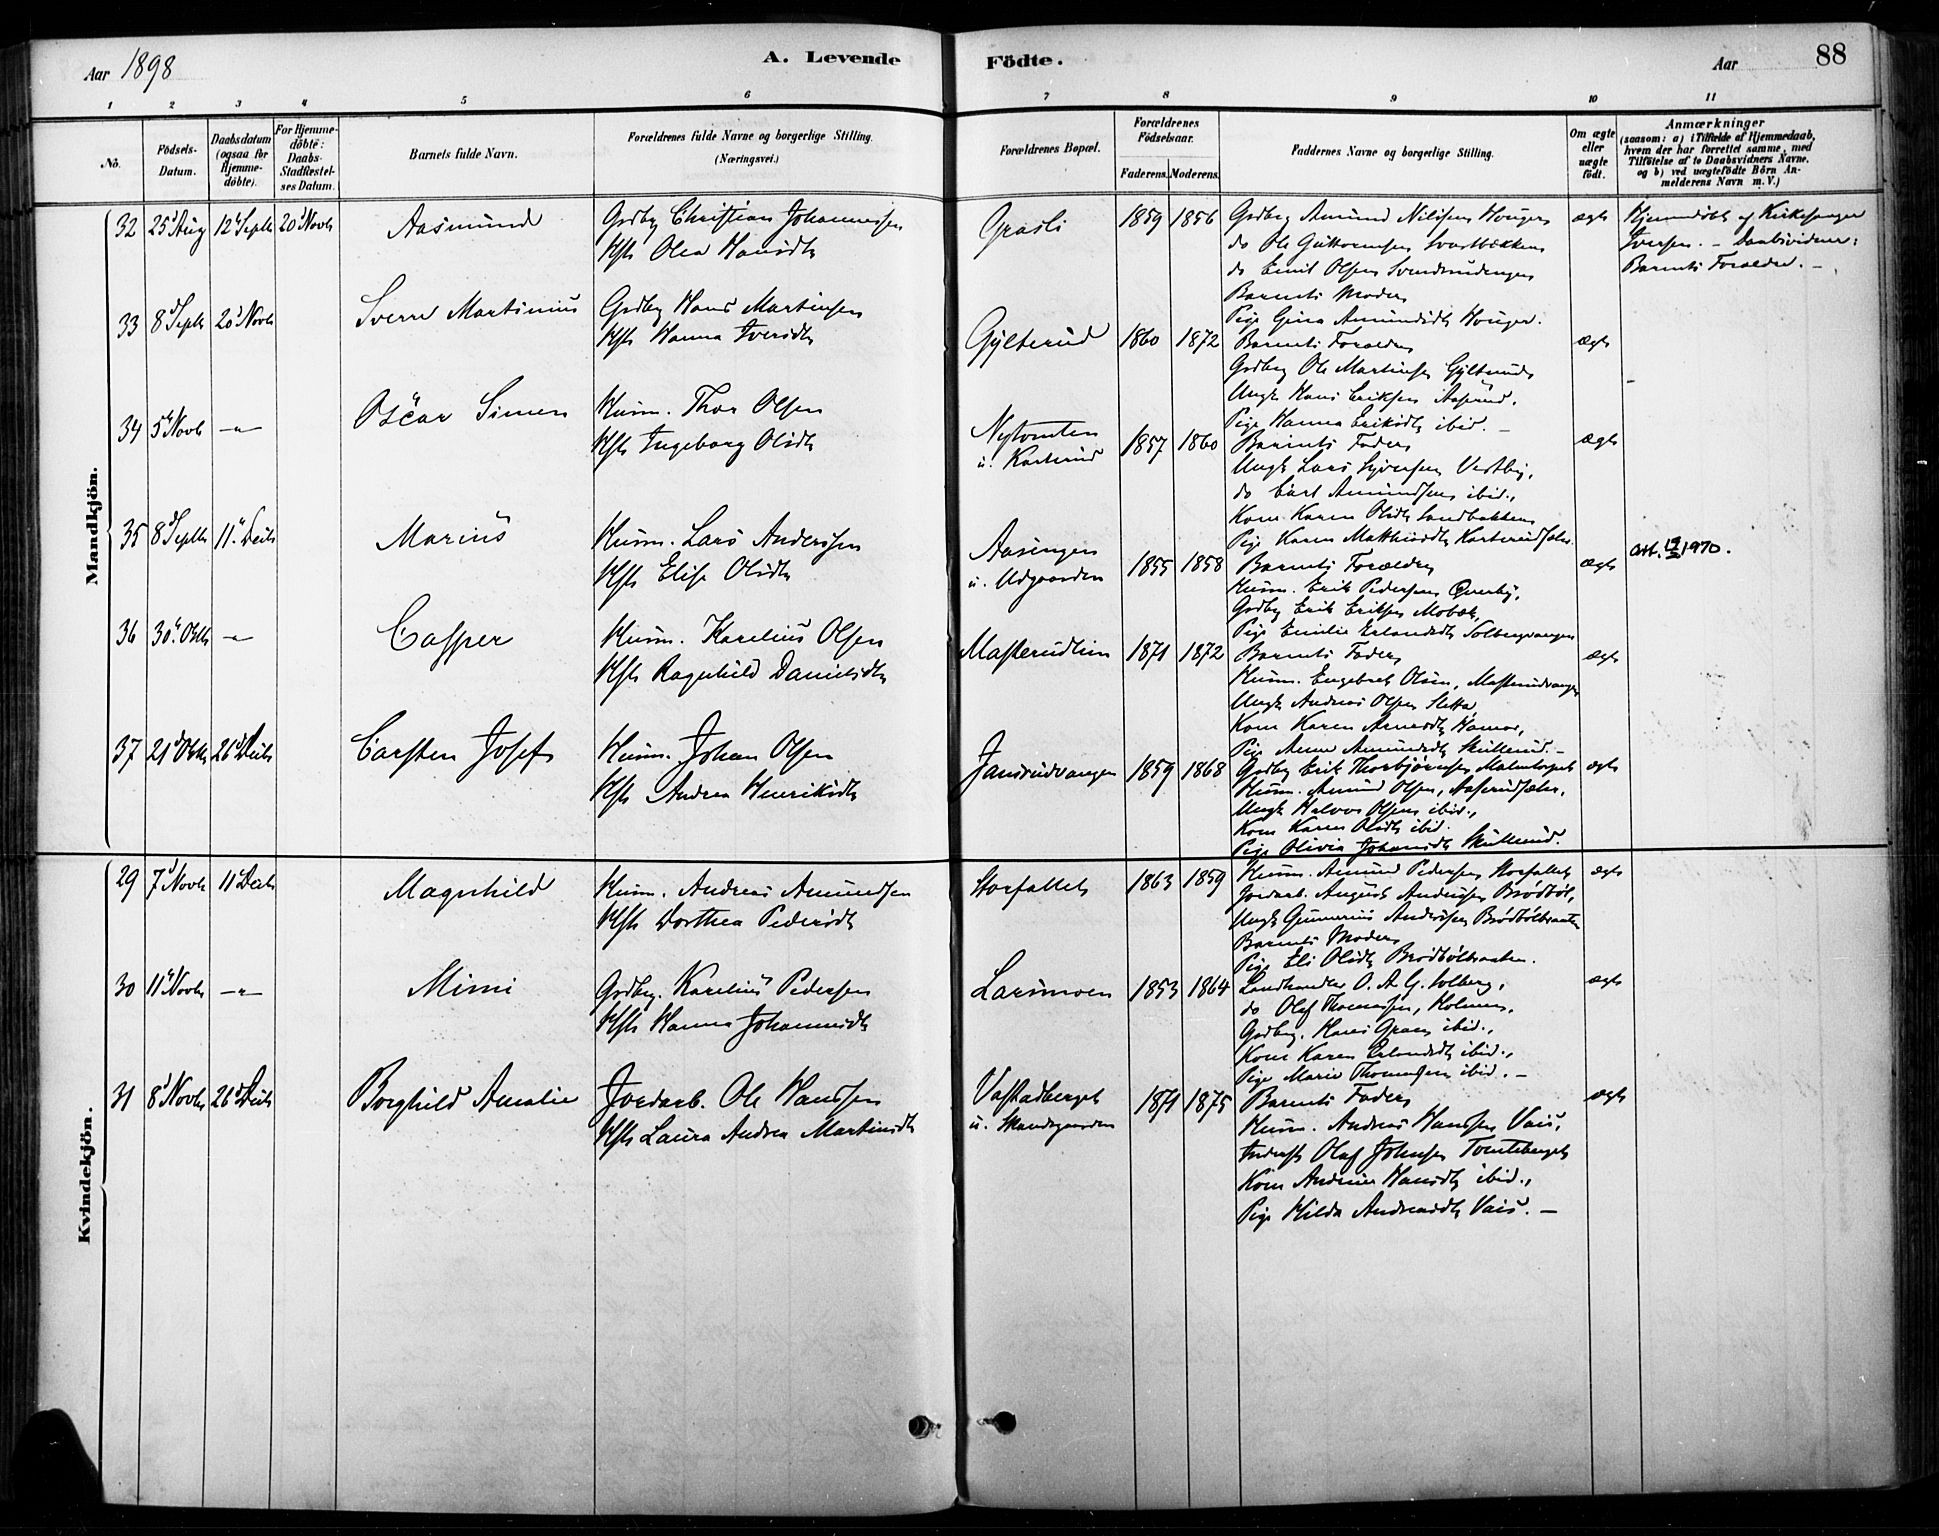 Aar 1898
A. Levende
Födte.
Aar
88
1 2 3 4 5 6 7 8 9 10 11
No.
Födsels-Datum.
Daabsdatum (ogsaa for Hjemme-döbte).
For Hjemme-döbte: Daabs-Stadfæstel-ses Datum.
Barnets fulde Navn.
Forældrenes fulde Navne og borgerlige Stilling.
(Næringsvei.)
Forældrenes Bopæl.
Forældrenes Födselsaar.
Faderens. Moderens.
Faddernes Navne og borgerlige Stilling.
Om ægte eller uægte födt.
Anmærkninger
(saasom: a) i Tilfælde af Hjemmedaab,
hvem der har forrettet samme, med
Tilföielse af to Daabsvidners Navne.
og b) ved uægtefödte Börn An-
melderens Navn m. V.)
Mandkjön.
32 25 Aug 12 Septb 20 Novb Aasmund
Grdbr Christian Johannessen
Hst Olea Hansdt
Grasli 1859 1856
Grdbr Amund Nilssen Houger
do Ole Guttormsen Svartbækken
do Emil Olsen
Barnets Moder
Pige Gina Amundsdt Houger.
ægte
Hjemmedöbt af Kirkesanger
Iversen. – Daabsvidner:
Barnets Forældre. –
33 8 Septb 20 Novb Sverre Martinius
Grdbr Hans Martinsen
Hst Hanna Iversdt
Gylterud 1860 1872
Barnets Forældre
Grdbr Ole Martinsen Gylterud
Ungk Hans Eriksen Aaserud.
Pige Hanna Eriksdt ibid. –
ægte
34 5 Novb –"– Oscar Simen
Husm. Thor Olsen
Hst Ingeborg Olsdt
Nytomten
u. Karterud 1857 1860
Barnets Fader
Ungk Lars Vestby,
do Carl Amundsen ibid.,
Kone Karen Olsdt Sandbakken
Pige Karen Matthisdt
ægte
35 8 Septb 11 Decb Marius
Husm. Lars Anderssen
Hst Elise Olsdt
Aasengen
u. Udgaarden 1855 1858
Barnets Forældre
Husm. Erik Pedersen Overby,
Grdbr Erik Eriksen Mobæk,
Pige Emilie Erlandsdt Solbergvangen
ægte
1970.
36 30 Oktb –"– Casper
Husm. Karelius Olsen
Hst Ragnhild Danielsdt
Masterudlien 1871 1872
Barnets Fader
Husm. Engebret Olsen, Masterudvangen
Ungk Andreas Olsen Sletta,
Kone Karen Arnesdt Hamar,
Pige Anne Amundsdt Skullerud. –
ægte
37 21 Oktb 26 Decb Carsten Josef
Husm. Johan Olsen
Hst Andrea Henriksdt
Jansrudvangen 1859 1868
Grdbr Erik Thorbjørnsen Malmtorpet
Husm. Amund Olsen, Aaserudsæter,
Ungk Halvor Olsen ibid.,
Kone Karen Olsdt ibid.
Pige Olivia Johansdt Skullerud.
ægte
Kvindekjön.
29 7 Novb 11 Decb Magnhild
Husm. Andreas Amundsen
Hst Dorthea Pedersdt
Storfallet 1863 1859
Husm. Amund Pedersen Storfallet
Jordarb. August Andersen Brödböl,
Ungk Gunnerius Anderssen Brödbölbraaten
Barnets Moder
Pige Eli Olsdt Brödbölbraaten.
ægte
30 11 Novb –"– Mimi
Grdbr. Karelius Pedersen
Hst Hanna Johannesdt
Larsmoen 1853 1864
Landhandler O. A. G. Solberg,
do Olaf Thomassen, Holmen,
Grdbr. Hans Gran ibid.,
Kone Karen Erlandsdt ibid.,
Pige Marie Thomassen ibid. –
ægte
31 8 Novb 26 Decb Borghild Amalie
Jordarb. Ole Hanssen
Hst Laura Andrea Martinsdt
Vastadberget
u. Skandsgaarden 1871 1875
Barnets Fader
Husm. Andreas Hanssen Vais,
Inderst Olaf Johnsen Tomteberget
Kone Andrine Hansdt ibid.,
Pige Hilda Andreasdt Vais. –
ægte